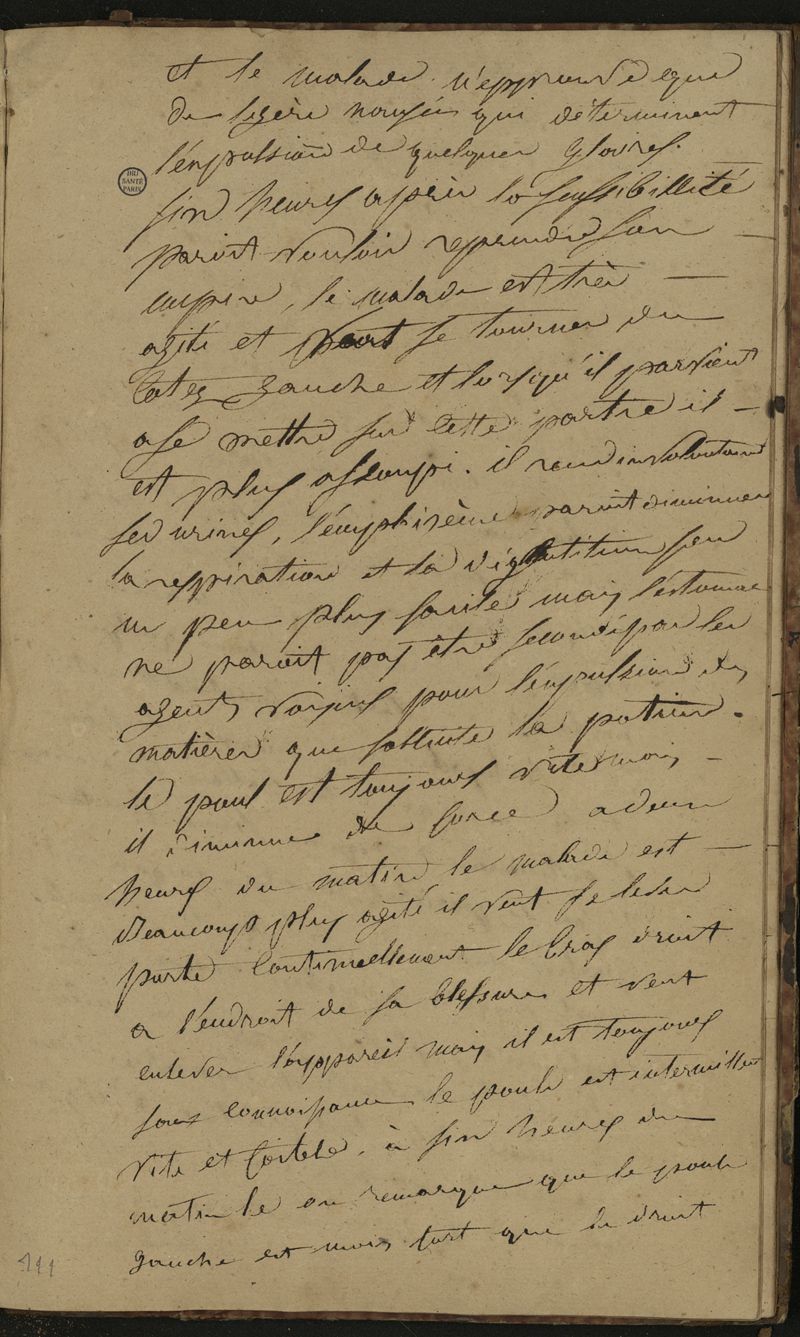 et le malade n'epprouve que
de legère nausées qui déterminent
l'expulsion de quelques glaires.
BIU
SANTÉ
PARIS
six heures après la sensibillité
paroit vouloir reprendre son
empire, le malade est très
agité et veut se tourner du
coté gauche et lorsqu'il parvient
a se mettre sur cette partie il
est plus assoupi. il rend involontaire
ses urines, l'emphisème paroit diminuer
la respiration et la déglutition sen
un peu plus facile mais l'estomac
ne paroit pas être secondé par les
agents voisins pour l'expulsion des
matières que sollicite la
le poul est toujours vite mais
il diminue de force a deux
heures du matin le malade est
Beaucoup plus agité il veut se lever
porte continuellement le bras droit
a l'endroit de sa blessure et veut
enlever l'appareil mais il est toujours
sans connoissance le pouls est intermittent
vite et foible. à six heures du
matin le on remarque que le pouls
gauche est moins fort que le droit
111